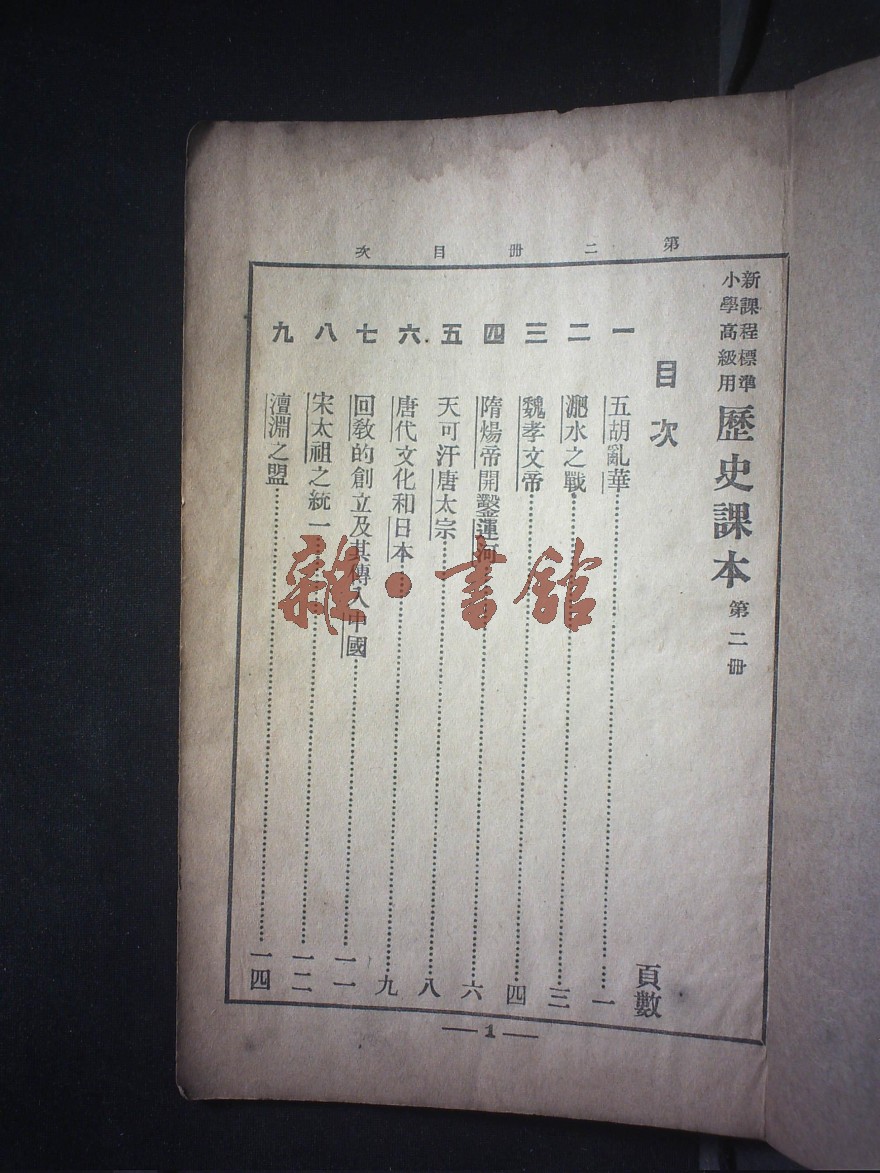 第二册目次
新課程標準
小學高級用
歷史課本 第二册
目次 頁數
一 五胡亂華 一
二 淝水之戰 三
三 魏孝文帝 四
四 隋煬帝開鑿運河 六
五 天可汗唐太宗 八
六 唐代文化和日本 九
七 回教的創立及其傳入中國 一一
八 宋太祖之統一 一二
九 澶淵之盟 一四
1
雜·書館